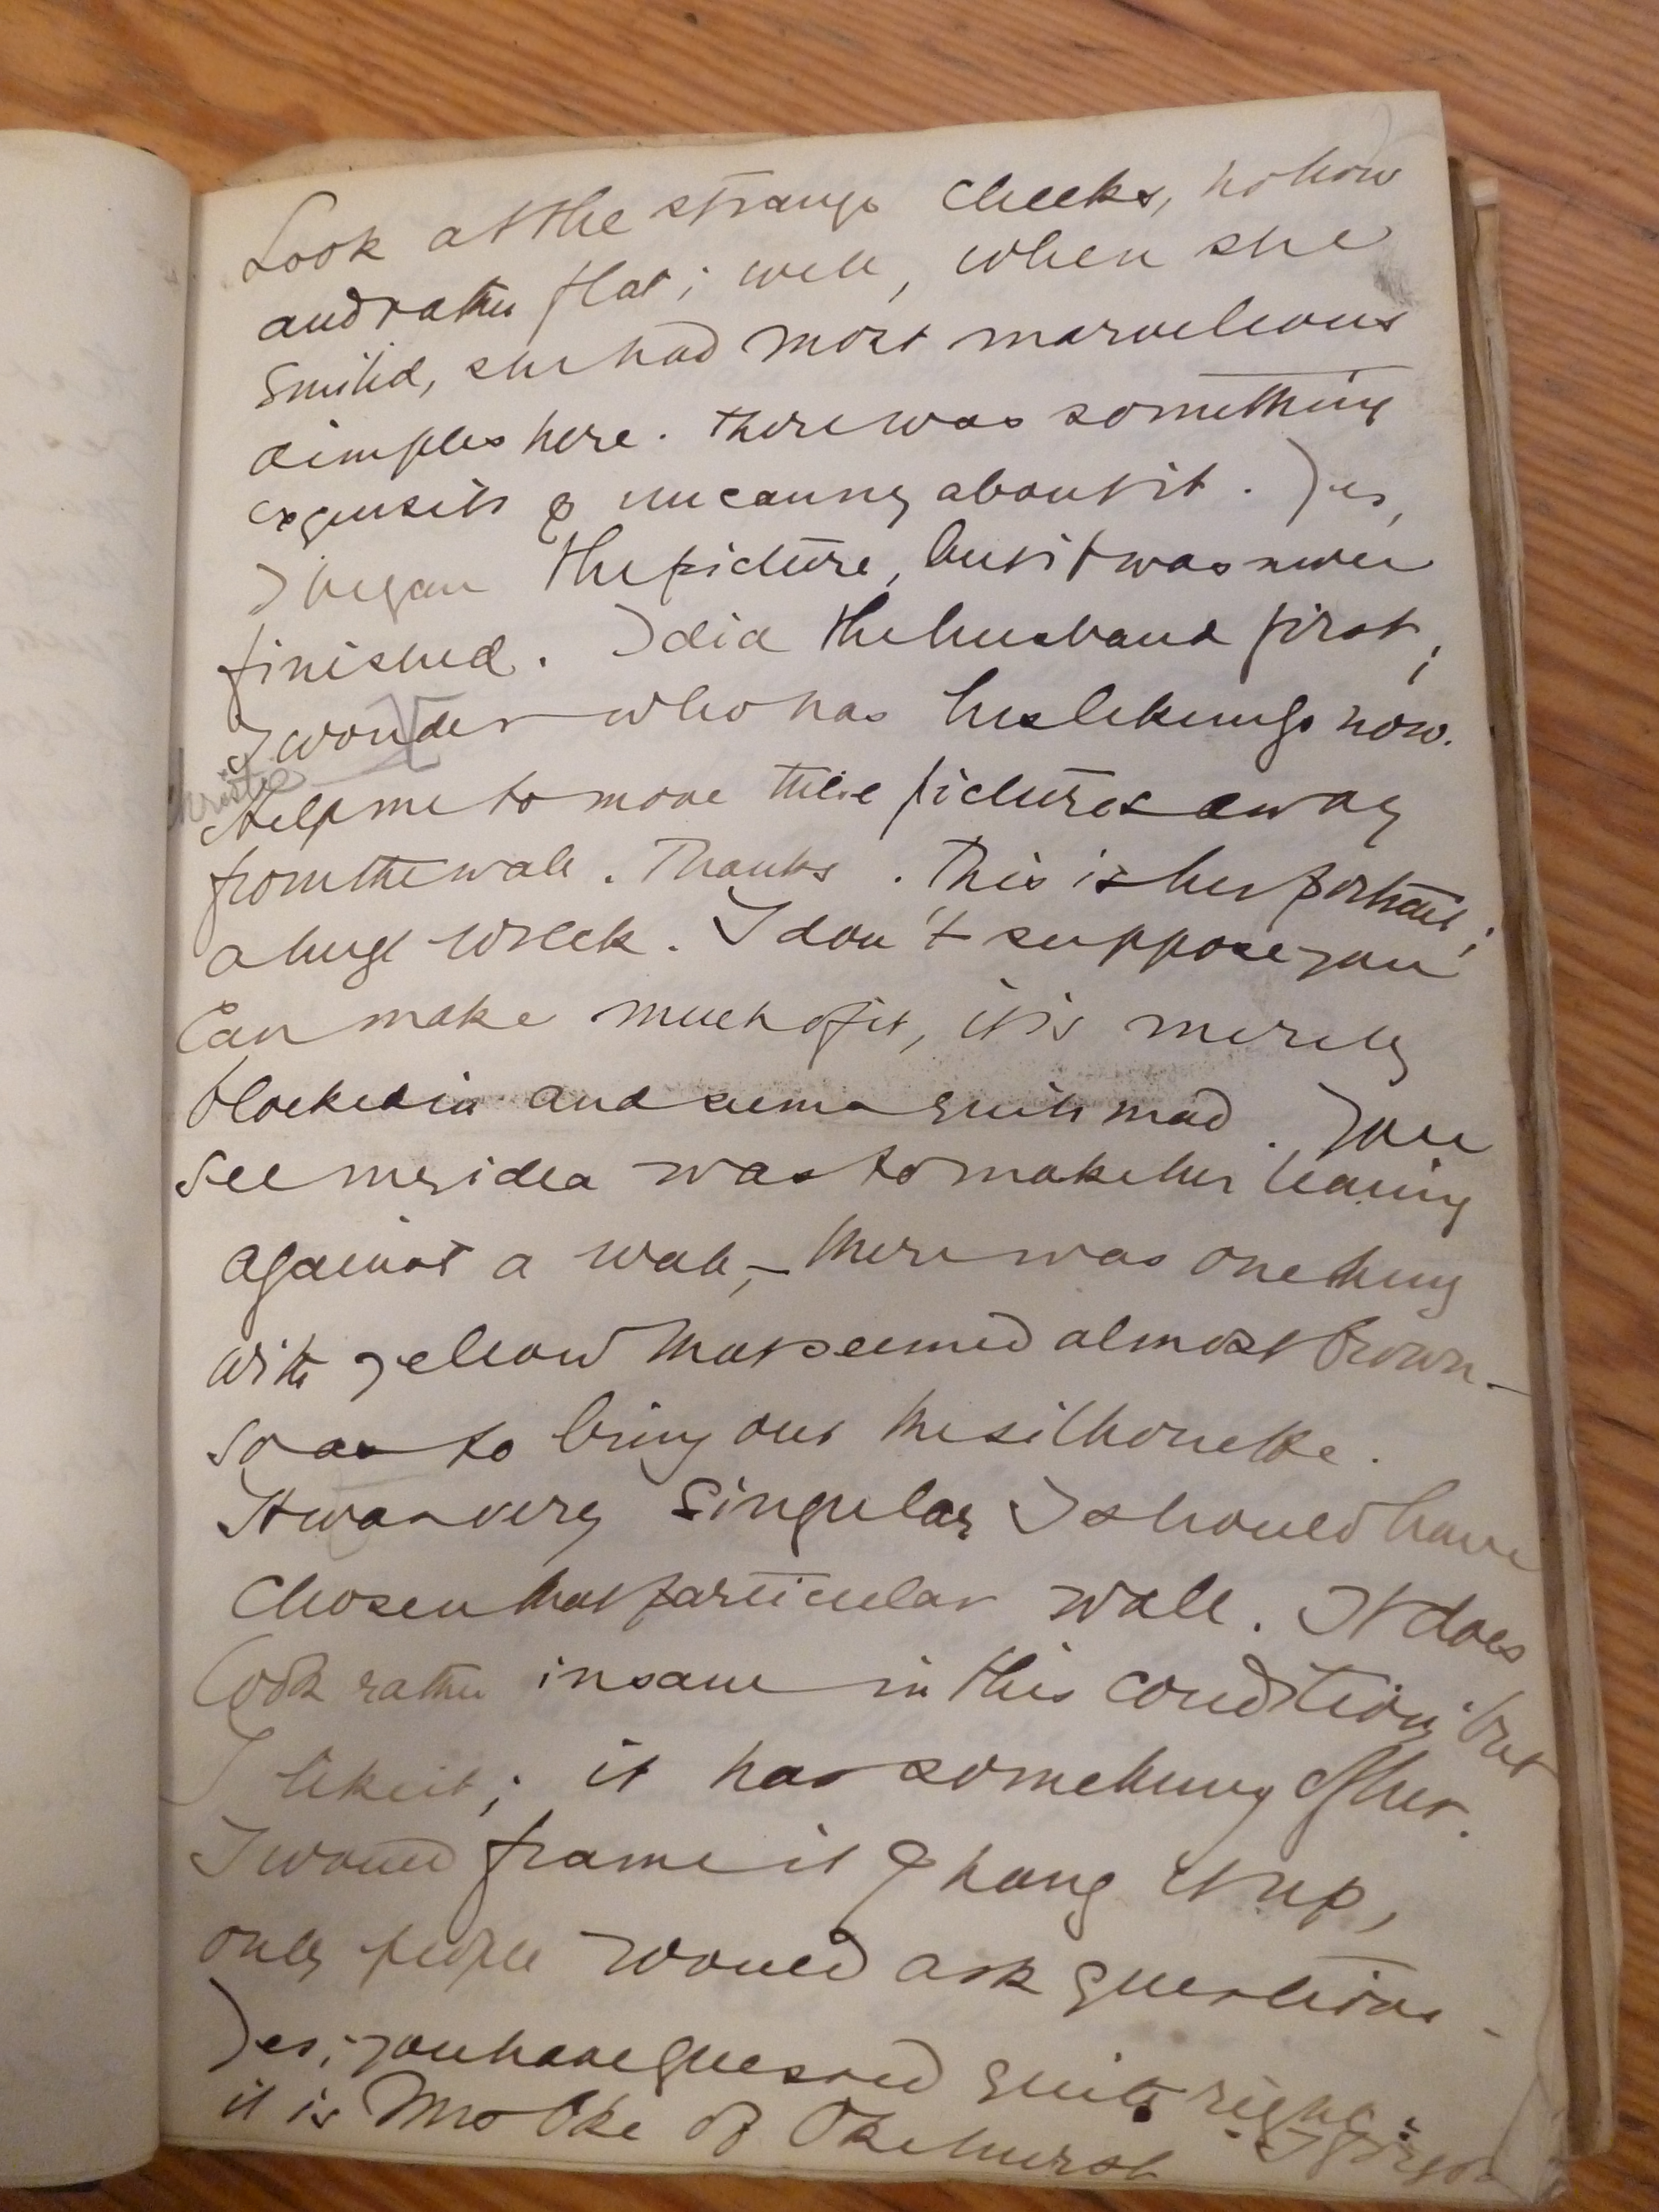 Look at the strange cheeks, hollow
and rather flat; well, when she
smiled, she had most marvellous
dimples here. There was something
exquisite & uncanny about it. Yes,
I began the picture, but it was never
finished. I did the husband first;
I wonder who has his likeness now.
Help me to move these pictures away
from the wall. Thanks. This is her portrait;
a huge wreck. I don't suppose you
can make much of it, it is merely
blocked in and seems quite mad. You
see my idea was to make her leaning
against a wall, – there was one hung
with yellow that seemed almost brown –
so as to bring out the silhouette.
It was very singular I should have
chosen that particular wall. It does
look rather insane in this condition, but
I like it; it has something of her.
I would frame it & hang it up,
only people would ask questions –
Yes, you have guessed quite right:
it is Mrs Oke of Okehurst. I forgot